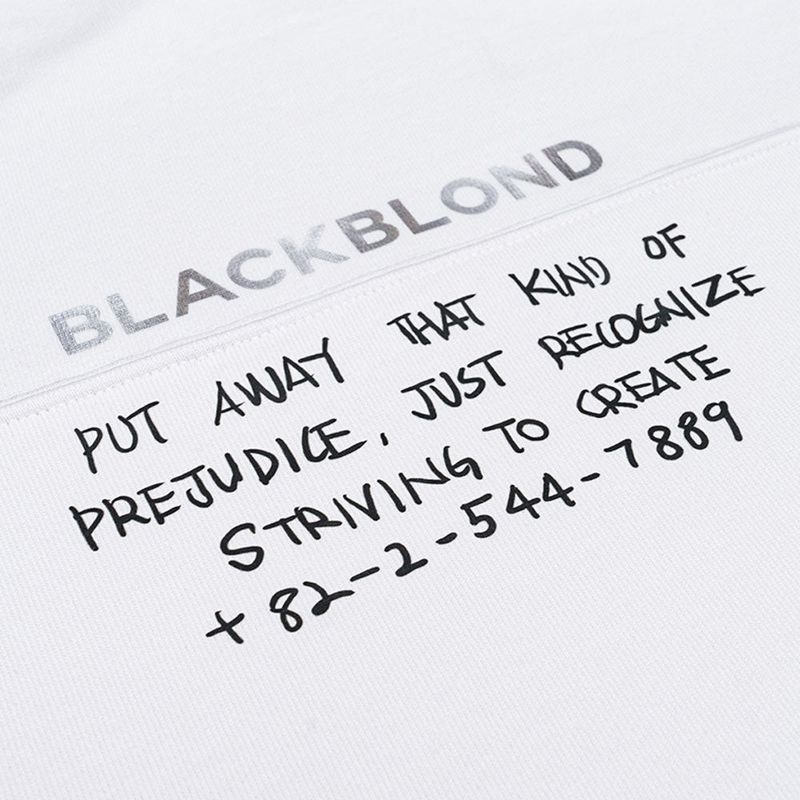 BLACKBLOND
PUT AWAY THAT KIND OF
PREJUDICE, JUST RECOGNIZE
STRIVING TO CREATE
+82-2-544-7889